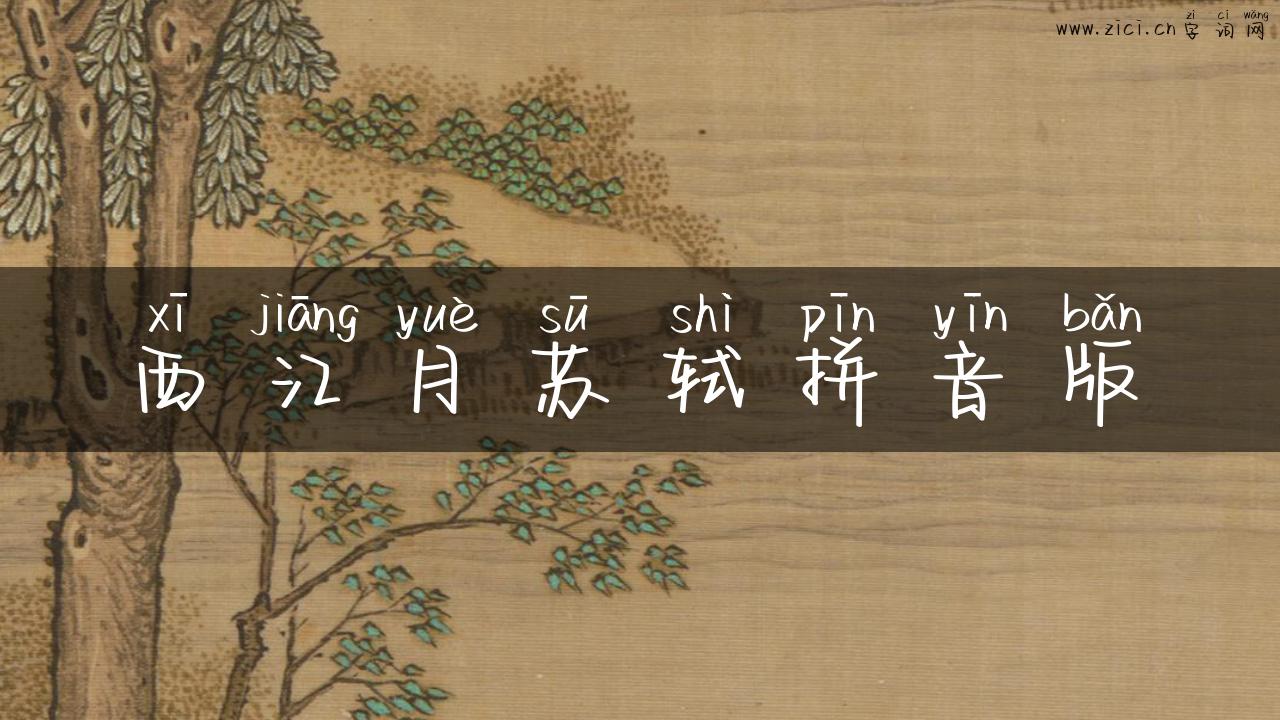 zì cí wǎng
www.zici.cn 字词网
xī jiāng yuè sū shì pīn yīn bǎn
西江月苏轼拼音版